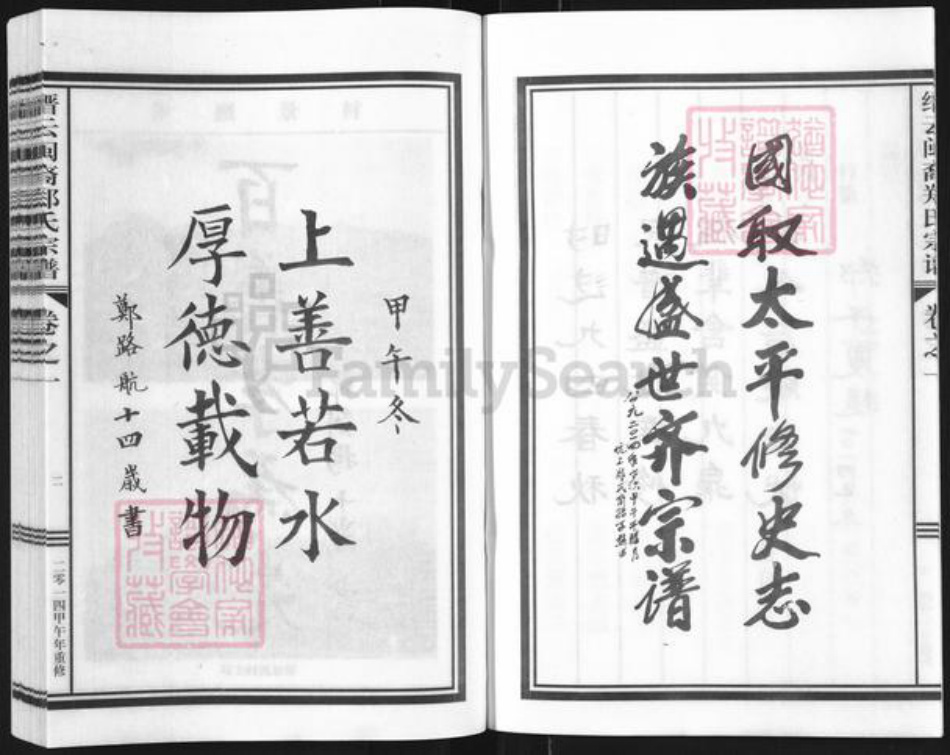 缙云闽裔郑氏宗谱
卷之一
國取太平修史志
族遇盛世齐宗谱
甲午冬
上善若水
厚德載物
鄭路航十四歲書
缙云闽裔郑氏宗谱
卷之一
二
二零一四甲午年重修
FamilySearch